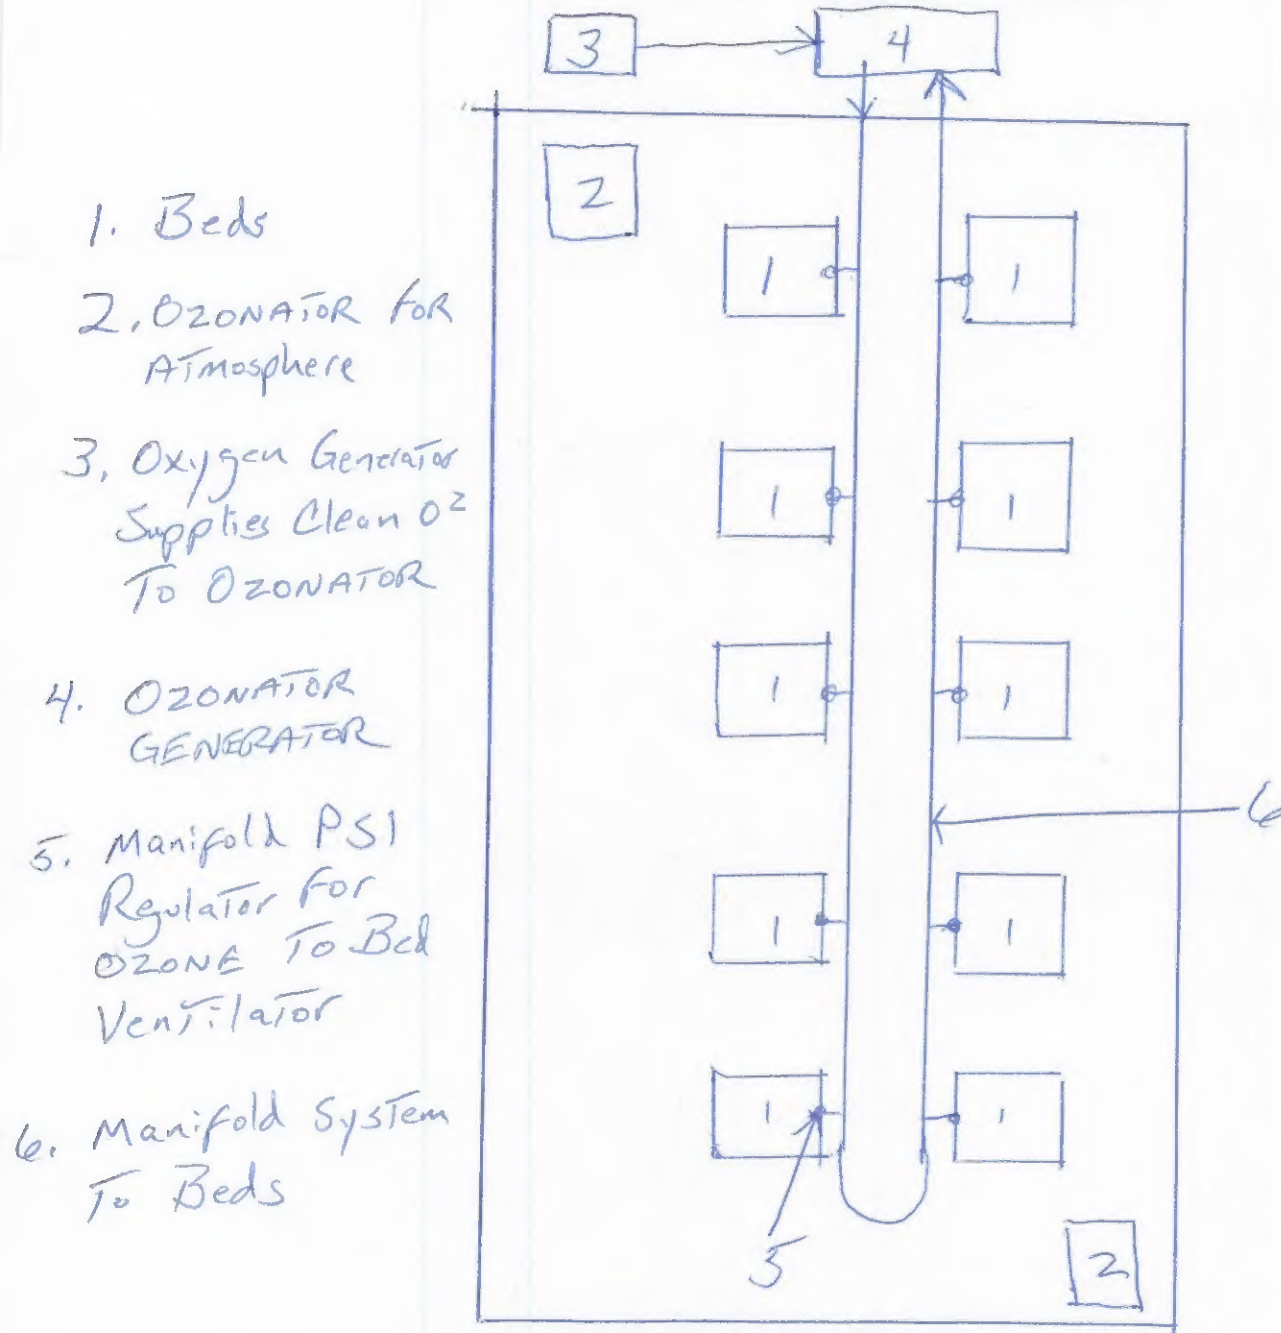 3
4
2
1. Beds
2. OZONATOR FOR
ATmosphere
3. Oxygen Generator
Supplies Clean O²
To OZONATOR
4. OZONATOR
GENERATOR
5. Manifold PSI
Regulator For
OZONE To Bed
Ventilator
6. Manifold System
To Beds
1 1
1 1
1 1
6
1 1
1 1
5
2